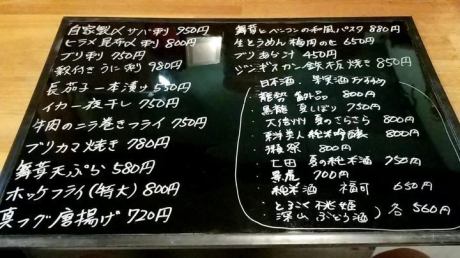 自家製〆サバ刺 950円
ヒラメ昆布〆刺 800円
ブリ刺 750円
殻付きうに刺 980円
長茄子一本漬け 550円
イカ一夜干し 750円
牛肉のニラ巻きフライ 750円
ブリカマ焼き 780円
舞茸天ぷら 580円
ホッケフライ(特大) 800円
真フグ唐揚げ 720円
舞茸とベーコンの和風パスタ 880円
生とうめん梅肉のせ 650円
ブリあら汁 450円
ジンギスカン鉄板焼き 850円
日本酒、果実酒
・能勢 800円
・黒龍 夏しぼり 750円
・大治州 夏のさらさら 800円
・東洋美人 純米吟醸 800円
・獺祭 800円
・七田 夏の純米酒 750円
700円
・純米酒 福司 650円
・とろこく桃姫
・深山ぶどう酒 ) 各 560円